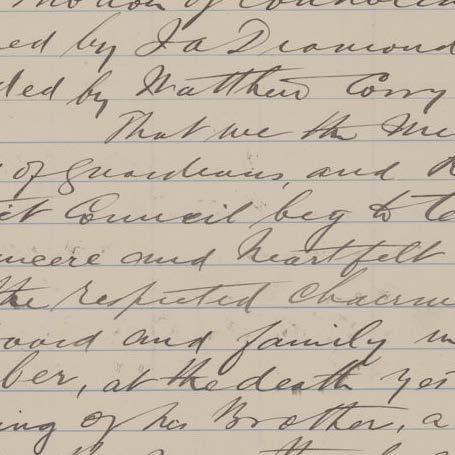 motion of condolen
ed by J A Diamond
ded by Matthew Corry
That we the Me
of Guardians, and R
ict Council beg to te
incere and heartfelt
the respected chairm
oard and family m
ber, at the death yes
ing of his Brother, a